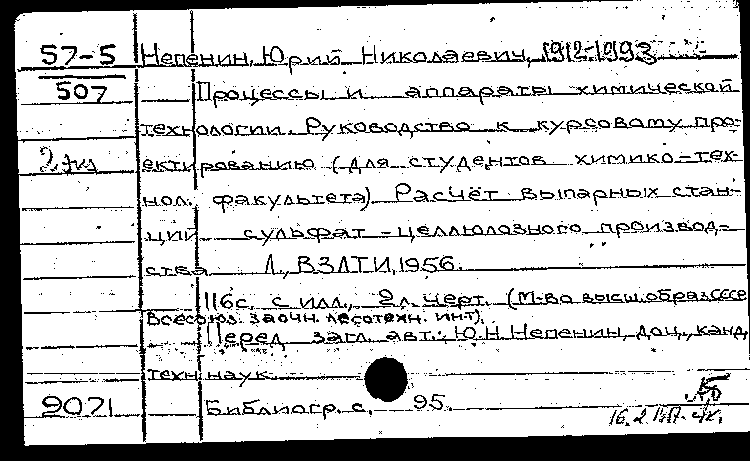 57-5 Непенин, Юрий Николаевич, 1912-1993
507 Процессы и аппараты химической
технологии. Руководство к курсовому про-
2 экз ектированию (для студентов химико-тех-
нол. факультета). Расчёт выпарных стан-
ций сульфат-целлюлозного производ-
ства Л., ВЗЛТИ, 1956.
116с. с илл., 2л. черт. (М-во высш. образ. СССР
Всесоюз. заочн. лесотехн. инт).
Перед загл. авт.: Ю.Н. Непенин, доц., канд.
техн наук
9071 Библиогр. с. 95.